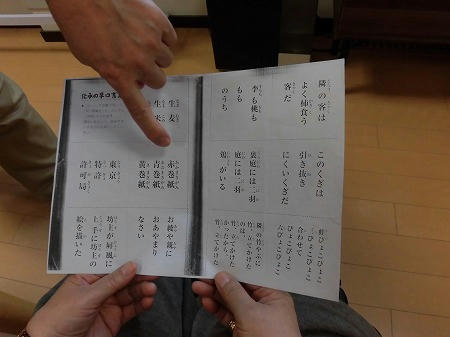 隣の客は
よく柿食う
客だ
このくぎは
引き抜き
にくいくぎだ
蛙ぴょこぴょこ
三ぴょこぴょこ
合わせて
ぴょこぴょこ
六ぴょこぴょこ
李も桃も
もも
のうち
裏庭には二羽
庭には二羽
鶏がいる
隣の竹やぶに
竹立てかけた
のは、
竹立てかけた
かったから
竹立てかけた
伝承の早口言
生麦
生米
赤巻紙
青巻紙
黄巻紙
お綾や親に
おあやまり
なさい
東京
特許
許可局
坊主が屏風に
上手に坊主の
絵を描いた